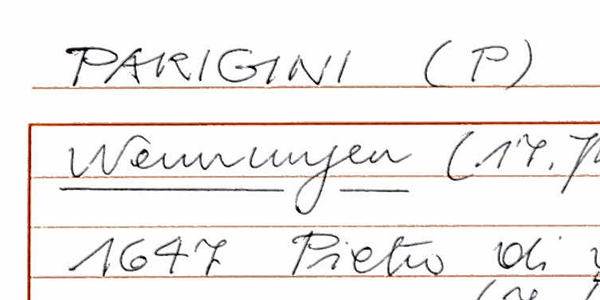 PARIGINI (P)
Wennungen (17.
1647 Pietro di